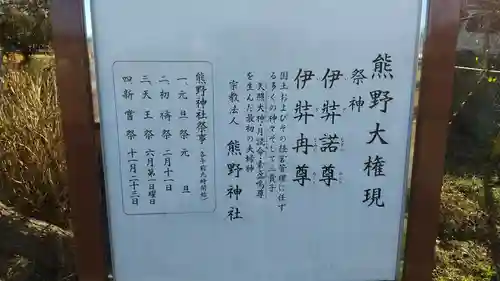 熊野大権現
祭神
伊弉諾尊
伊弉冉尊
国土およびその経営管理に任ず
る多くの神々そして三貴子
天照大神・月読命・素盞嗚尊
を生んだ最初の夫婦神
宗教法人 熊野神社
熊野神社祭事(各午前九時開始)
一、元旦祭 元旦
二、初祷祭 二月十一日
三、天王祭 六月第一日曜日
四、新嘗祭 十一月二十三日